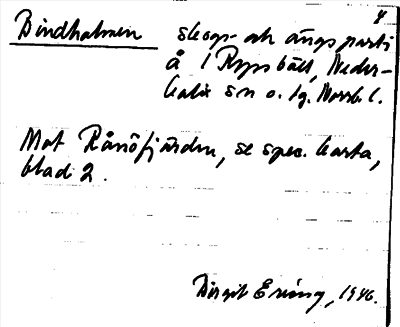 4
Bindholmen skogs- och ängsparti
å 1 Ryssbält, Neder-
kalix sn o. tg. Norrb. l.
Mot Rånöfjärden, se spec. karta,
blad 2.
Birgit Ering, 1946.